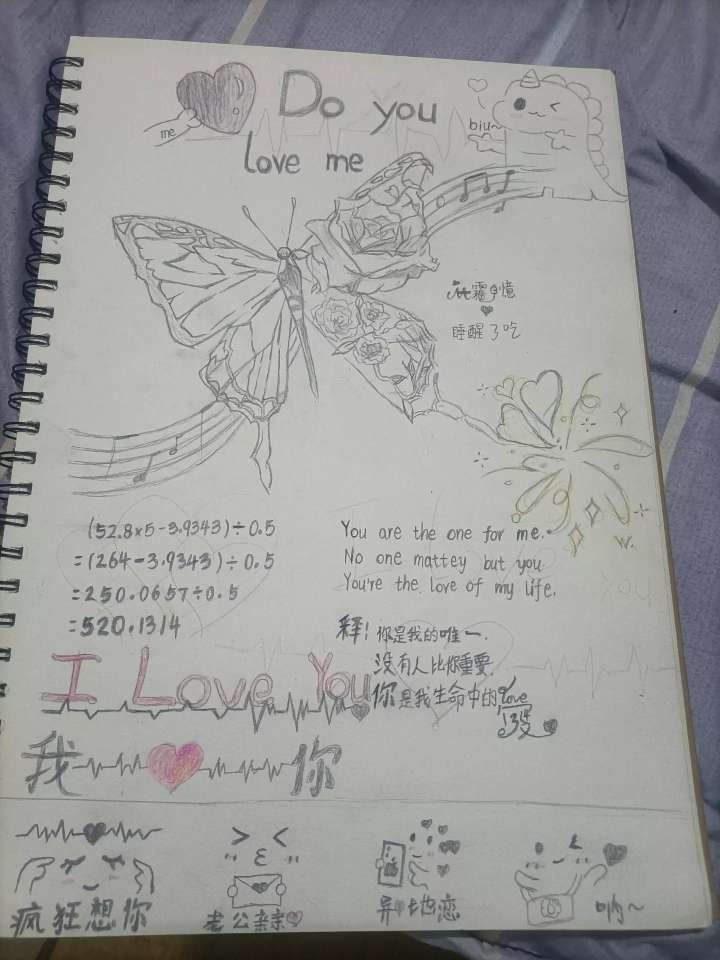 Do you
love me
me
biu~
霜夕憶
睡醒了吃
(52.8×5-3.9343)÷0.5
=(264-3.9343)÷0.5
=250.0657÷0.5
=520.1314
You are the one for me.
No one mattey but you
You're the love of my life.
释! 你是我的唯一.
没有人比你重要.
你是我生命中的Love
I Love You
我 你
疯狂想你
老公亲亲
异地恋
哟~